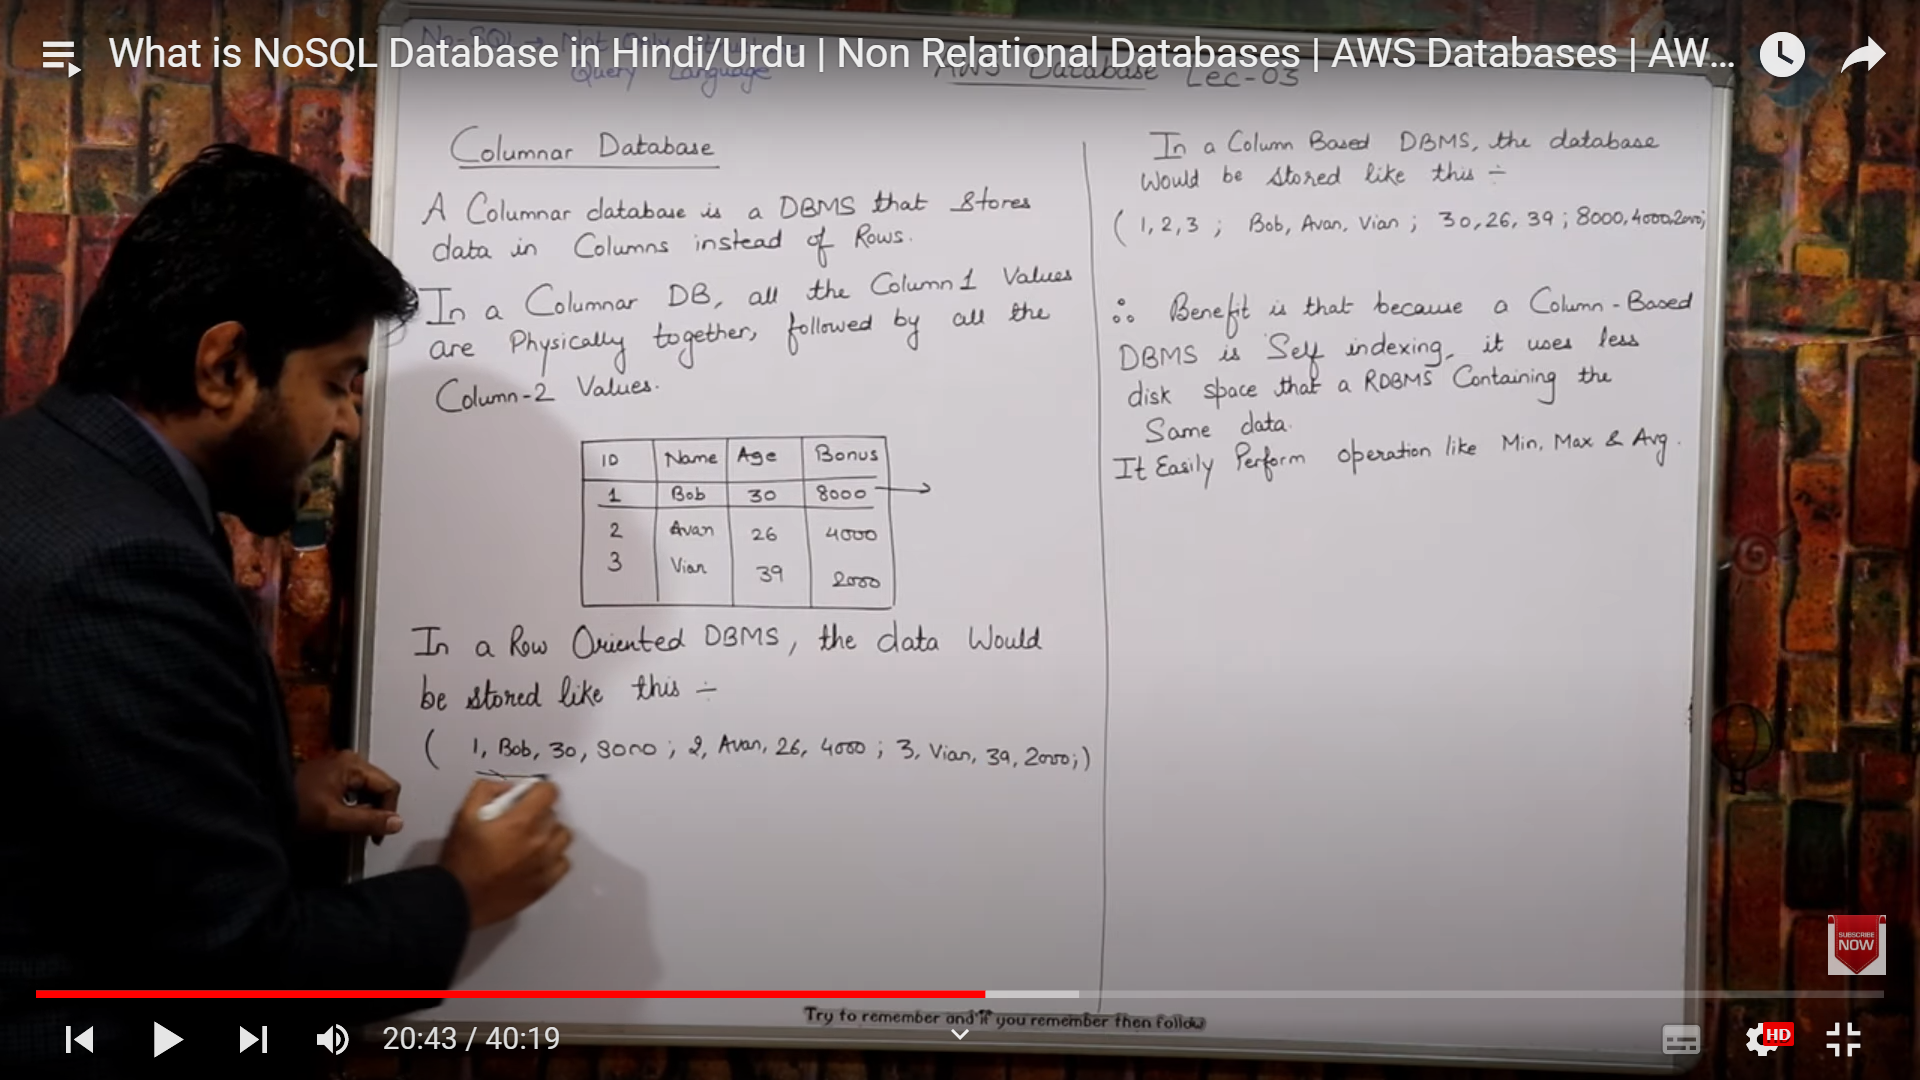 What is NoSQL Database in Hindi/Urdu | Non Relational Databases | AWS Databases | AW...
Query Language
AWS Database Lec-03
Columnar Database
A Columnar database is a DBMS that Stores
data in Columns instead of Rows.
In a Columnar DB, all the Column 1 Values
are Physically together, followed by all the
Column-2 Values.
ID Name Age Bonus
1 Bob 30 8000
2 Avan 26 4000
3 Vian 39 2000
In a Row Oriented DBMS, the data Would
be stored like this ÷
( 1, Bob, 30, 8000 ; 2, Avan, 26, 4000 ; 3, Vian, 39, 2000;)
In a Column Based DBMS, the database
Would be stored like this ÷
( 1, 2, 3 ; Bob, Avan, Vian ; 30, 26, 39 ; 8000, 4000, 2000;
Benefit is that because a Column-Based
DBMS is Self indexing, it uses less
disk space that a RDBMS Containing the
Same data.
It Easily Perform operation like Min, Max & Avg.
SUBSCRIBE
NOW
Try to remember and if you remember then follow
20:43 / 40:19
HD